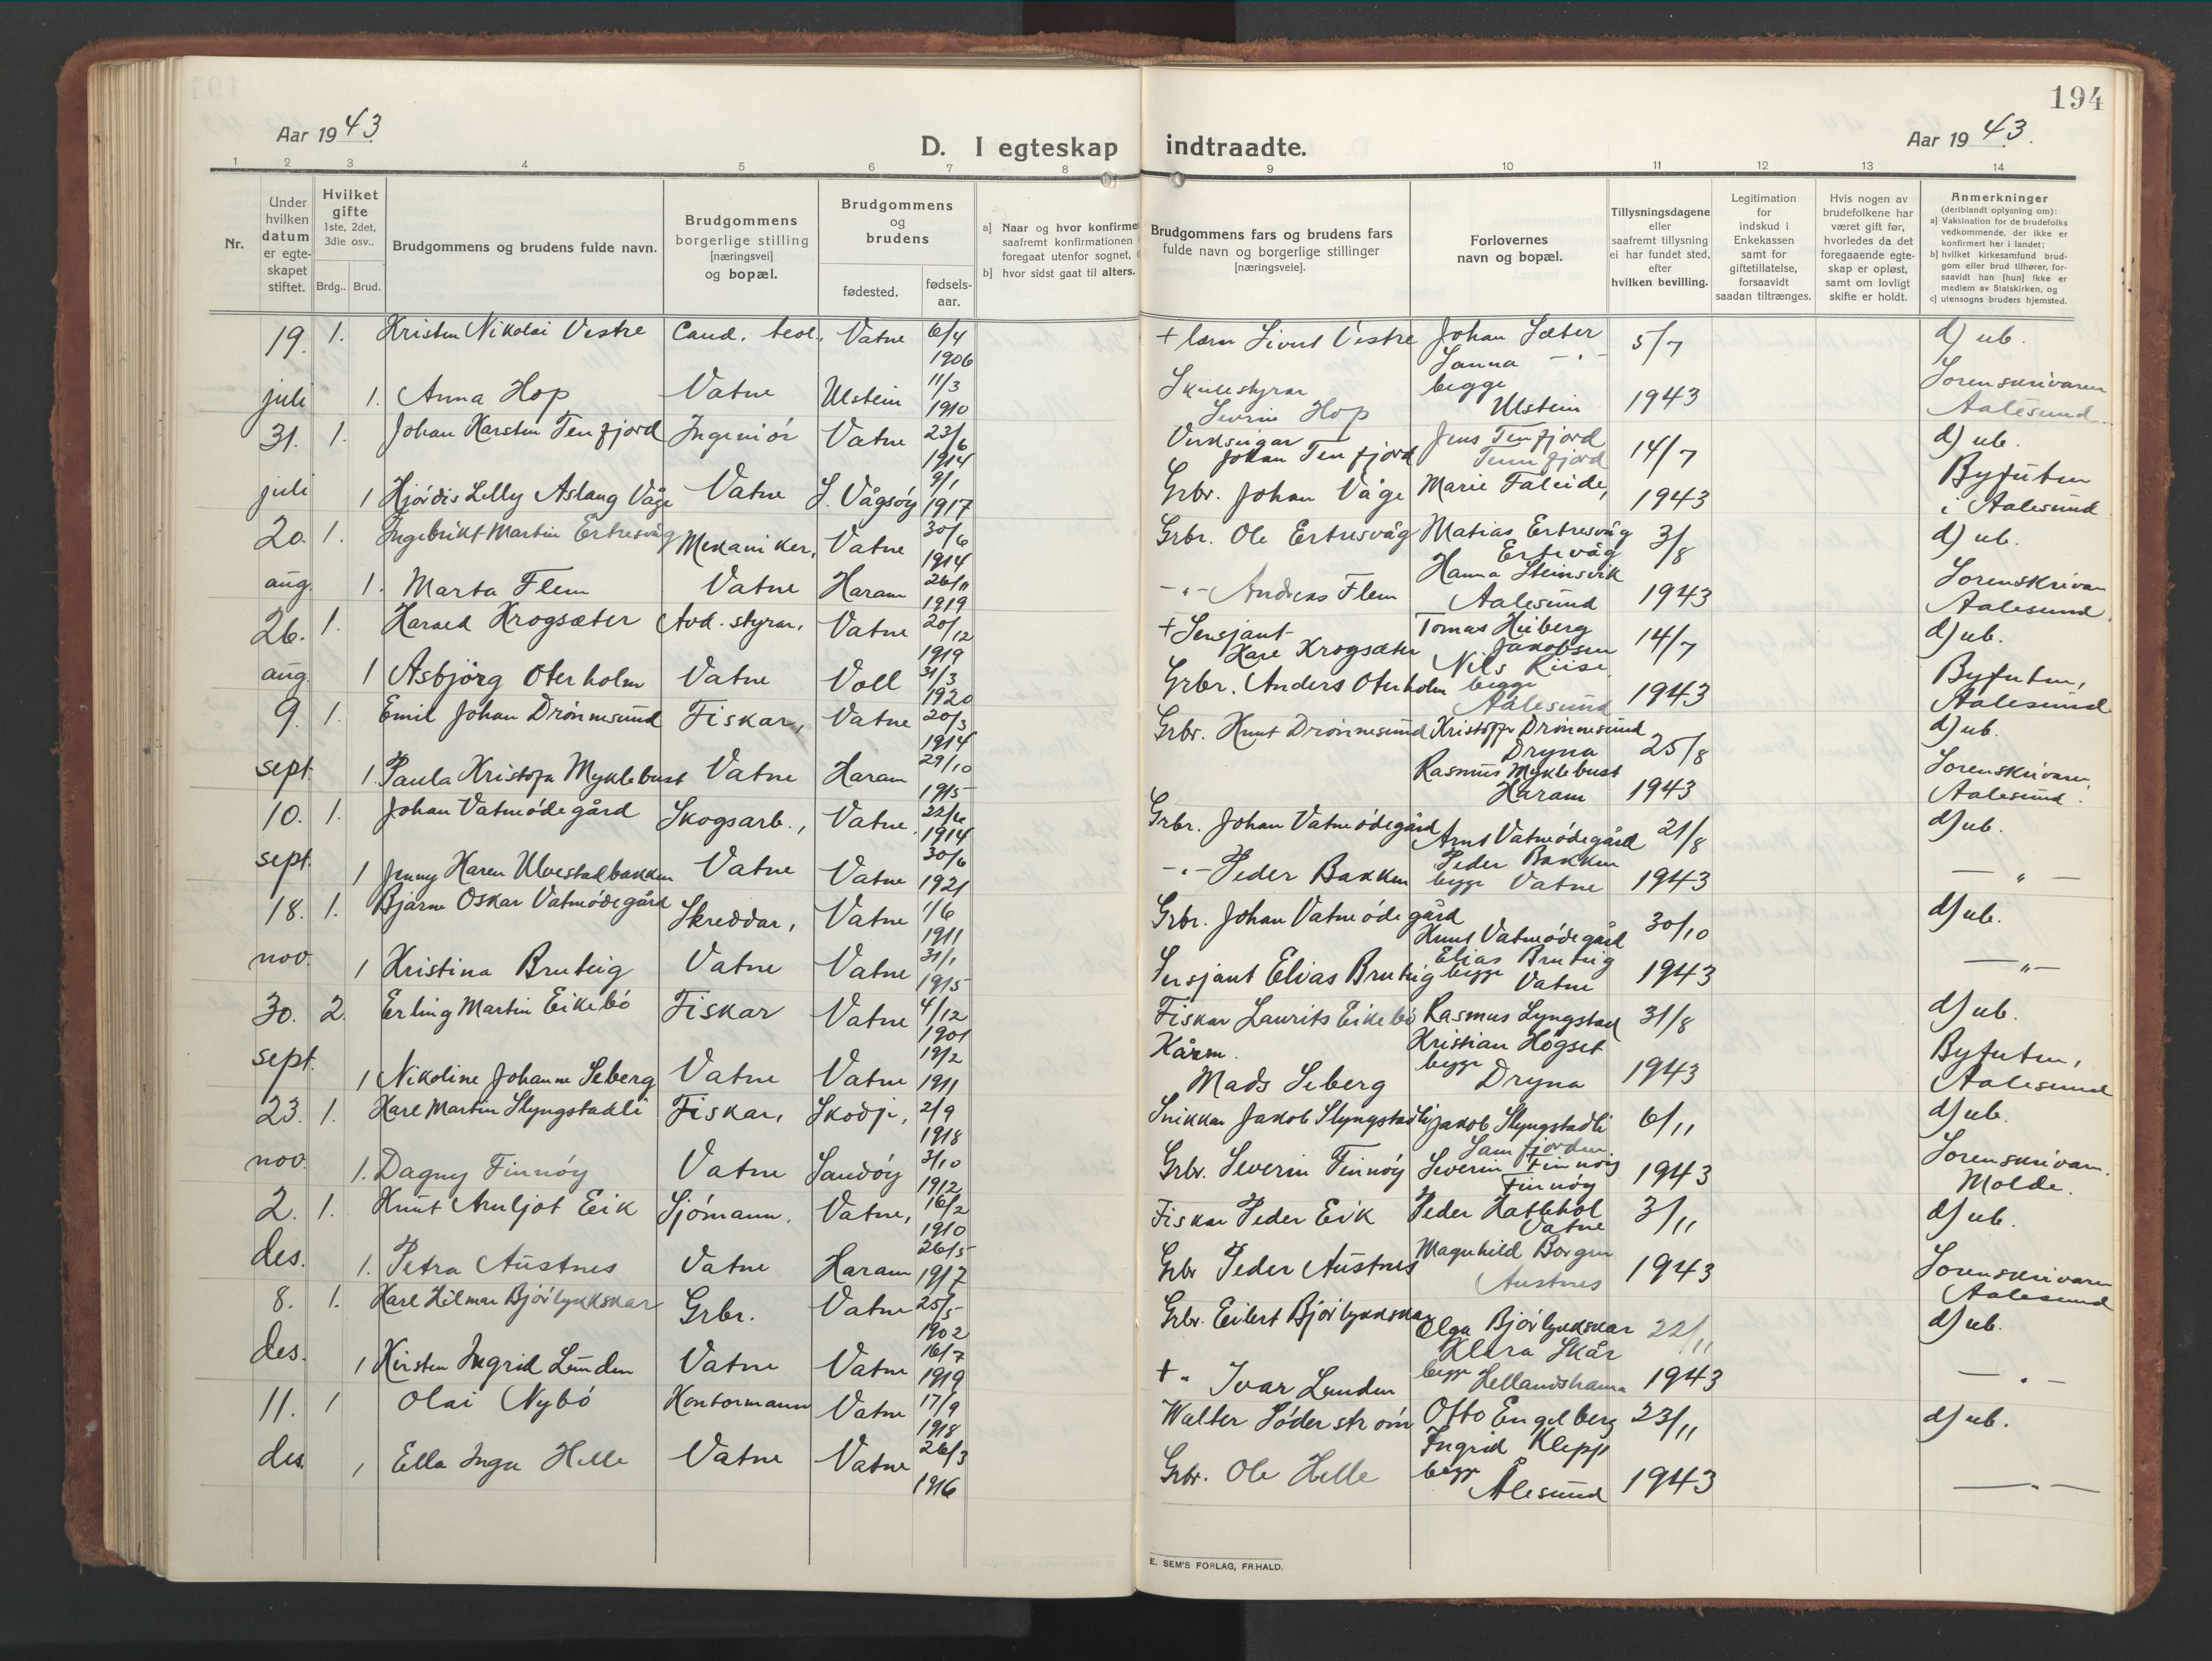 194
Aar 1943.
D. I egteskap indtraadte.
Aar 1943.
1 2 3 4 5 6 7 8 9 10 11 12 13 14
Nr.
Under hvilken datum er egteskapet stiftet.
Hvilket gifte 1ste, 2det, 3die osv..
Brdg.. Brud.
Brudgommens og brudens fulde navn.
Brudgommens borgerlige stilling [næringsvei] og bopæl.
Brudgommens og brudens
fødested.
fødsels-aar.
a] Naar og hvor konfirme
saafremt konfirmationen
foregaat utenfor sognet,
b] hvor sidst gaat til alters.
Brudgommens fars og brudens fars fulde navn og borgerlige stillinger [næringsveie].
Forlovernes navn og bopæl.
Tillysningsdagene eller saafremt tillysning ei har fundet sted, efter hvilken bevilling.
Legitimation for indskud i Enkekassen samt for giftetillatelse, forsaavidt saadan tiltrænges.
Hvis nogen av brudefolkene har været gift før, hvorledes da det foregaaende egteskap er opløst, samt om lovligt skifte er holdt.
Anmerkninger (deriblandt oplysning om): a] Vaksination for de brudefolks vedkommende, der ikke er konfirmert her i landet; b] hvilket kirkesamfund brudgom eller brud tilhører, forsaavidt han [hun] ikke er medlem av Statskirken, og c] utensogns bruders hjemsted.
19. 1. Kristen Nikolai Vestre Cand. teol., Vatne 6/4 1906 + lærer Sivert Vestre Johan Sæter 5/7 d) ub.
Sanna -"-
juli 1. Anna Hop Vatne Ulstein 11/3 1910 Skulestyrar Severin Hop begge Ulstein 1943 Sorenskrivaren Aalesund.
31. 1. Johan Karsten Tenfjord Ingeniör Vatne 23/6 1914 Verkseigar Johan Tenfjord Jens Tenfjord Tennfjord 14/7 d) ub.
juli 1 Hjördis Lilly Aslaug Våge Vatne S. Vågsöy 9/1 1917 Grbr. Johan Våge Marie Faleide, 1943 Byfuten i Aalesund
20. 1. Ingebrikt Martin Ertresvåg Mekaniker, Vatne 30/6 1914 Grbr. Ole Ertresvåg Matias Ertresvåg Ertevåg 3/8 d) ub.
aug. 1. Marta Flem Vatne Haram 26/11 1919 -"- Andreas Flem Hanna Steinsvik Aalesund 1943 Sorenskrivar Aalesund.
26. 1. Harald Krogsæter Avd. styrar, Vatne 20/12 1919 + Sersjant Kare Krogsæter Tomas Huberg Jakobsen 14/7 d) ub.
aug. 1 Asbjörg Oterholm Vatne Voll 31/3 1920 Grbr. Anders Oterholm Nils Riise begge Aalesund 1943 Byfuten, Aalesund
9. 1. Emil Johan Drönnesund Fiskar, Vatne 20/3 1914 Grbr. Knut Drönnesund Kristoffer Drönnesund Dryna 25/8 d) ub.
sept. 1. Paula Kristofa Myklebust Vatne Haram 29/10 1915 Rasmus Myklebust Haram 1943 Sorenskrivaren, Aalesund.
10. 1. Johan Vatneödegård Skogsarb., Vatne 22/6 1914 Grbr. Johan Vatneödegård Arnt Vatneödegård 21/8 d) ub.
sept. 1 Jenny Karen Ulvestadbakken Vatne Vatne 30/6 1921 -"- Peder Bakken Peder Bakken begge Vatne 1943 -"-
18. 1. Bjarne Oskar Vatneödegård Skreddar, Vatne 1/6 1911 Grbr. Johan Vatneödegård Knut Vatneödegård 30/10 d) ub.
nov. 1 Kristina Bruteig Vatne Vatne 31/1 1915 Sersjant Elias Bruteig Elias Bruteig begge Vatne 1943 -"-
30. 2. Erling Martin Eikebö Fiskar Vatne 4/12 1901 Fiskar Laurits Eikebö Rasmus Lyngstad 31/8 d) ub.
sept. 1 Nikoline Johanne Seberg Vatne Vatne 19/2 1911 Kårm. Mads Seberg Kristian Hogset begge Dryna 1943 Byfuten, Aalesund
23. 1. Karl Martin Slyngstadli Fiskar, Skodje, 2/9 1918 Snikkar Jakob Slyngstadli Jakob Slyngstadli Samfjorden 6/11 d) ub.
nov. 1. Dagny Finnöy Vatne Sandöy 3/10 1912 Grbr. Severin Finnöy Severin Finnöy Finnöy 1943 Sorenskrivaren. Molde.
2. 1. Knut Arnljot Eik Sjömann. Vatne, 16/2 1910 Fiskar Peder Eik Peder Hatlehol Vatne 3/11 d) ub.
des. 1. Petra Austnes Vatne Haram 26/5 1917 Grbr Peder Austnes Magnhild Borgen Austnes 1943 Sorenskrivaren Aalesund
8. 1. Karl Hilmar Björlykkskar Grbr. Vatne 25/5 1902 Grbr. Eilert Björlykkskar Olga Björlykkskar 22/11 d) ub.
des. 1 Kirsten Ingrid Lunden Vatne Vatne 16/7 1919 + " Ivar Lunden Klara Skår begge Hellandshamn 1943 -"-
11. 1 Olai Nybö Kontormann Vatne 17/9 1918 Walter Söderström Otto Engelberg 23/11 d) ub.
des. 1 Ella Inga Helle Vatne Vatne 26/3 1916 Grbr. Ole Helle Ingrid Klepp begge Ålesund 1943 -"-
E. SEM'S FORLAG, FR.HALD.